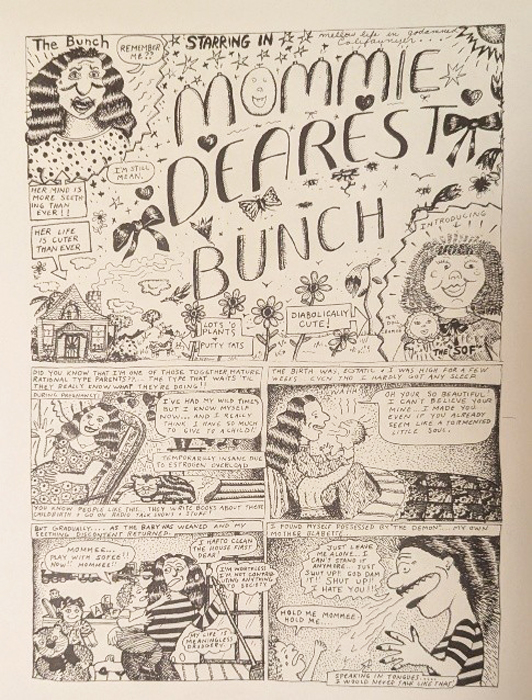 The Bunch
REMEMBER
ME??
STARRING IN
mellow life in goddamned
Califaunyer...
MOMMIE
DEAREST
BUNCH
I'M STILL
MEAN.
HER MIND IS
MORE SEETH
ING THAN
EVER!!
HER LIFE
IS CUTER
THAN EVER
LOTS 'O
PLANTS
PUTTY TATS
DIABOLICALLY
CUTE!
INTRODUCING
THE "SOF"
DID YOU KNOW THAT I'M ONE OF THOSE TOGETHER, MATURE,
RATIONAL TYPE PARENTS??... THE TYPE THAT WAITS 'TIL
THEY REALLY KNOW WHAT THEY'RE DOING!!
DURING PREGNANCY
I'VE HAD MY WILD TIMES
BUT I KNOW MYSELF
NOW... AND I REALLY
THINK I HAVE SO MUCH
TO GIVE TO A CHILD!
TEMPORARILY INSANE DUE
TO ESTROGEN OVERLOAD
YOU KNOW PEOPLE LIKE THIS.. THEY WRITE BOOKS ABOUT THESE
CHILDBIRTH & GO ON RADIO TALK SHOWS & STUFF!
THE BIRTH WAS ECSTATIC & I WAS HIGH FOR A FEW
WEEKS EVEN THO I HARDLY GOT ANY SLEEP
WAHH
OH YOUR SO BEAUTIFUL
I CAN'T BELIEVE YOUR
MINE... I MADE YOU
EVEN IF YOU ALREADY
SEEM LIKE A TORMENTED
LITTLE SOUL.
BUT GRADUALLY.... AS THE BABY WAS WEANED AND MY
SEETHING DISCONTENT RETURNED:
MOMMEE...
PLAY WITH SOFEE!!
NOW!! MOMMEE!!
I HAFTO CLEAN
THE HOUSE FIRST
DEAR!
I'M WORTHLESS
I'M NOT CONTRI
BUTING ANYTHING
TO SOCIETY
MY LIFE IS
MEANINGLESS
DRUDGERY
I FOUND MYSELF POSSESSED BY "THE DEMON"... MY OWN
MOTHER BLABETTE
JUST LEAVE
ME ALONE.. I
CAN'T STAND IT
ANYMORE.. JUST
SHUT UP!! GOD DAM
IT!! SHUT UP!!
I HATE YOU!!!
HOLD ME MOMMEE
HOLD ME..
SPEAKING IN TONGUES....
I WOULD NEVER TALK LIKE THAT